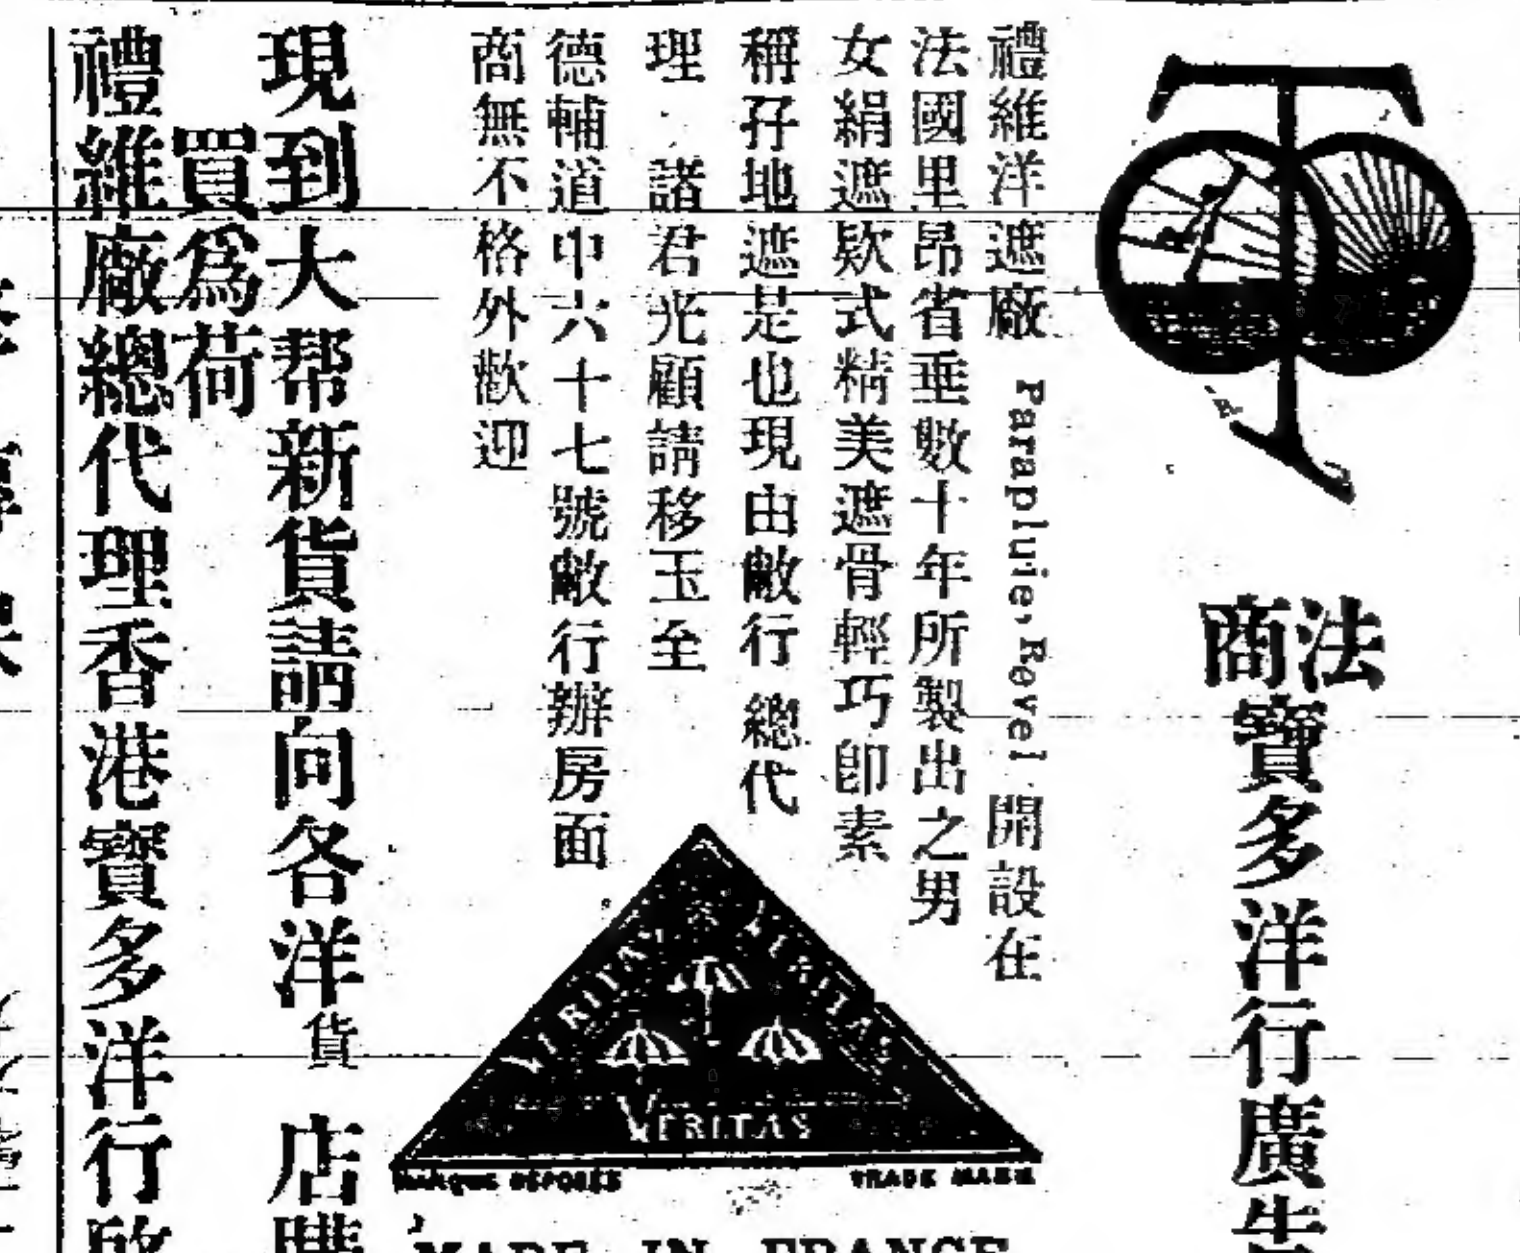 法商
寶多洋行廣告
禮維洋遮廠 Parapluie, Revel 開設在
法國里昂省垂數十年所製出之男
女絹遮欵式精美遮骨輕巧卽素
稱孖地遮是也現由敝行 總代
理 諸君光顧請移玉至
德輔道中六十七號敝行辦房面
商無不格外歡迎
VERITAS VERITAS
VERITAS
MARQUE DEPOSEE TRADE MARK
MADE IN FRANCE
現到大帮新貨請向各洋貨店購
買爲荷
禮維廠總代理香港寶多洋行啟